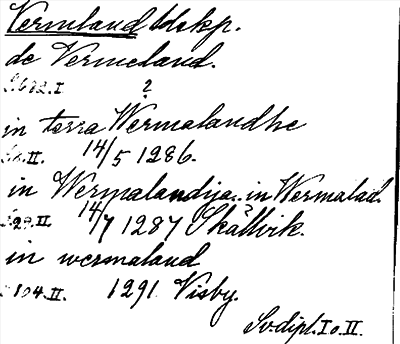 Vermland ldskp.
de Vermeland.
S. 682. I ?
in terra Wermalandhe
II. 14/5 1286.
in Wermalandija. in Wermalad.
II 14/7 1287 Skällvik. ?
in wermaland
S 104. II. 1291 Visby.
Sv. dipl. I o. II.